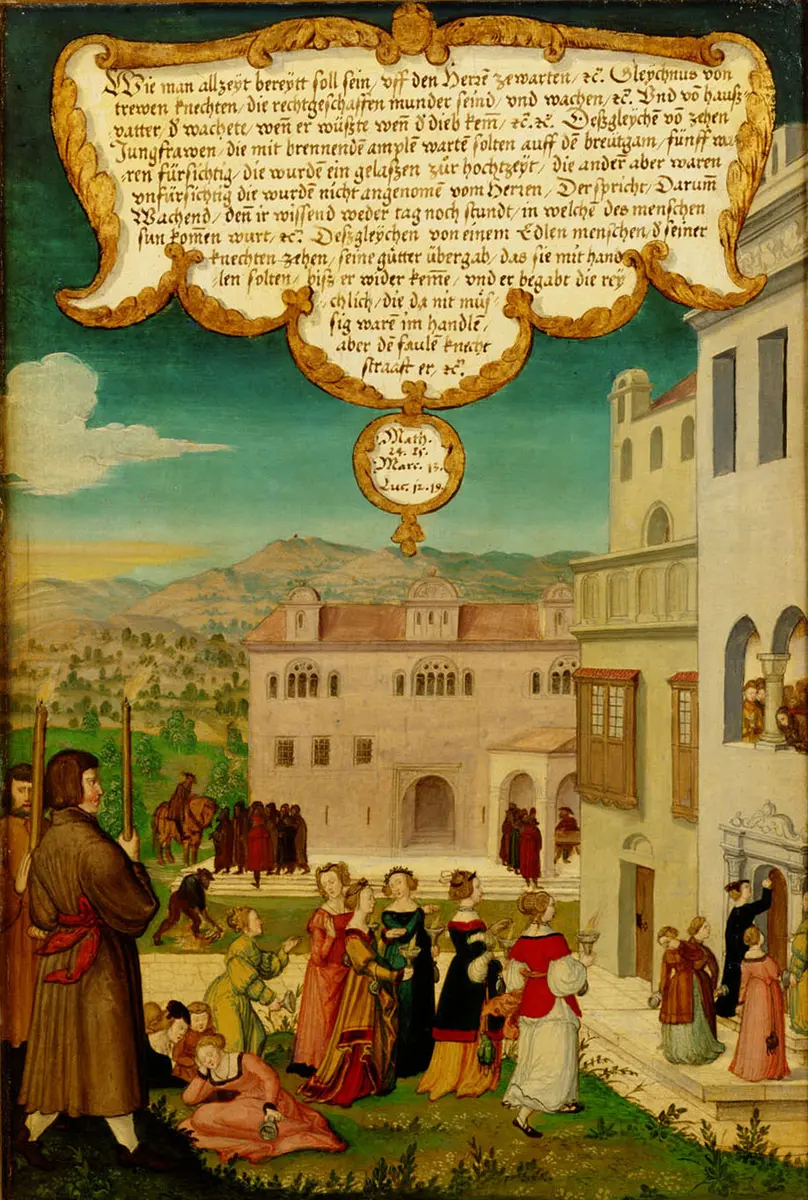 Wie man allzeyt bereytt soll sein / vff den Herrẽ zewarten / ꝛcˀ. Gleychnus von
trewen knechten / die rechtgeschaffen munder seind / vnd wachen / ꝛcˀ. Vnd võ hauß⸗
vatter / d̕ wachete / weñ er wüßte weñ d̕ dieb kem̃ / ꝛcˀ. ꝛcˀ. Deßgleychẽ võ zehen
Jungfrawen / die mit brennenden amplẽ wartẽ solten auff dẽ breütgam / fünff wa⸗
ren fürsichtig / die wurdẽ ein gelaßen zůr hochtzeyt / die anderẽ aber waren
vnfürsichtig die wurdẽ nicht angenomẽ vom Herren / Der spricht / Darum̃
Wachend / deñ ir wissend weder tag noch stundt / in welchẽ des menschen
sun kom̃en wurt / ꝛcˀ. Deßgleychen von einem Edlen menschen / d̕ seiner
knechten zehen / seine gütter übergab / das sie mit hand⸗
len solten / biß er wider kem̃e / vnd er begabt die rey⸗
chlich / die da nit müs⸗
sig warẽ im handlẽ /
aber dẽ faulẽ knecht
straafft er / ꝛcˀ.
Math.
24. 25.
Marc. 13.
Luc. 12. 19.